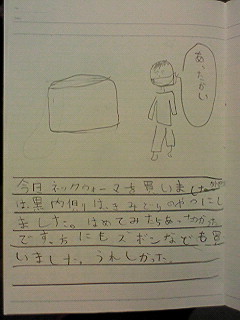 あ、たかい
今日ネックウォーマを買いました。外側
は黒内側はきみどりのやつにし
ました。はめてみたらあったかった
です。ほかにもズボンなども買
いました。うれしかった。